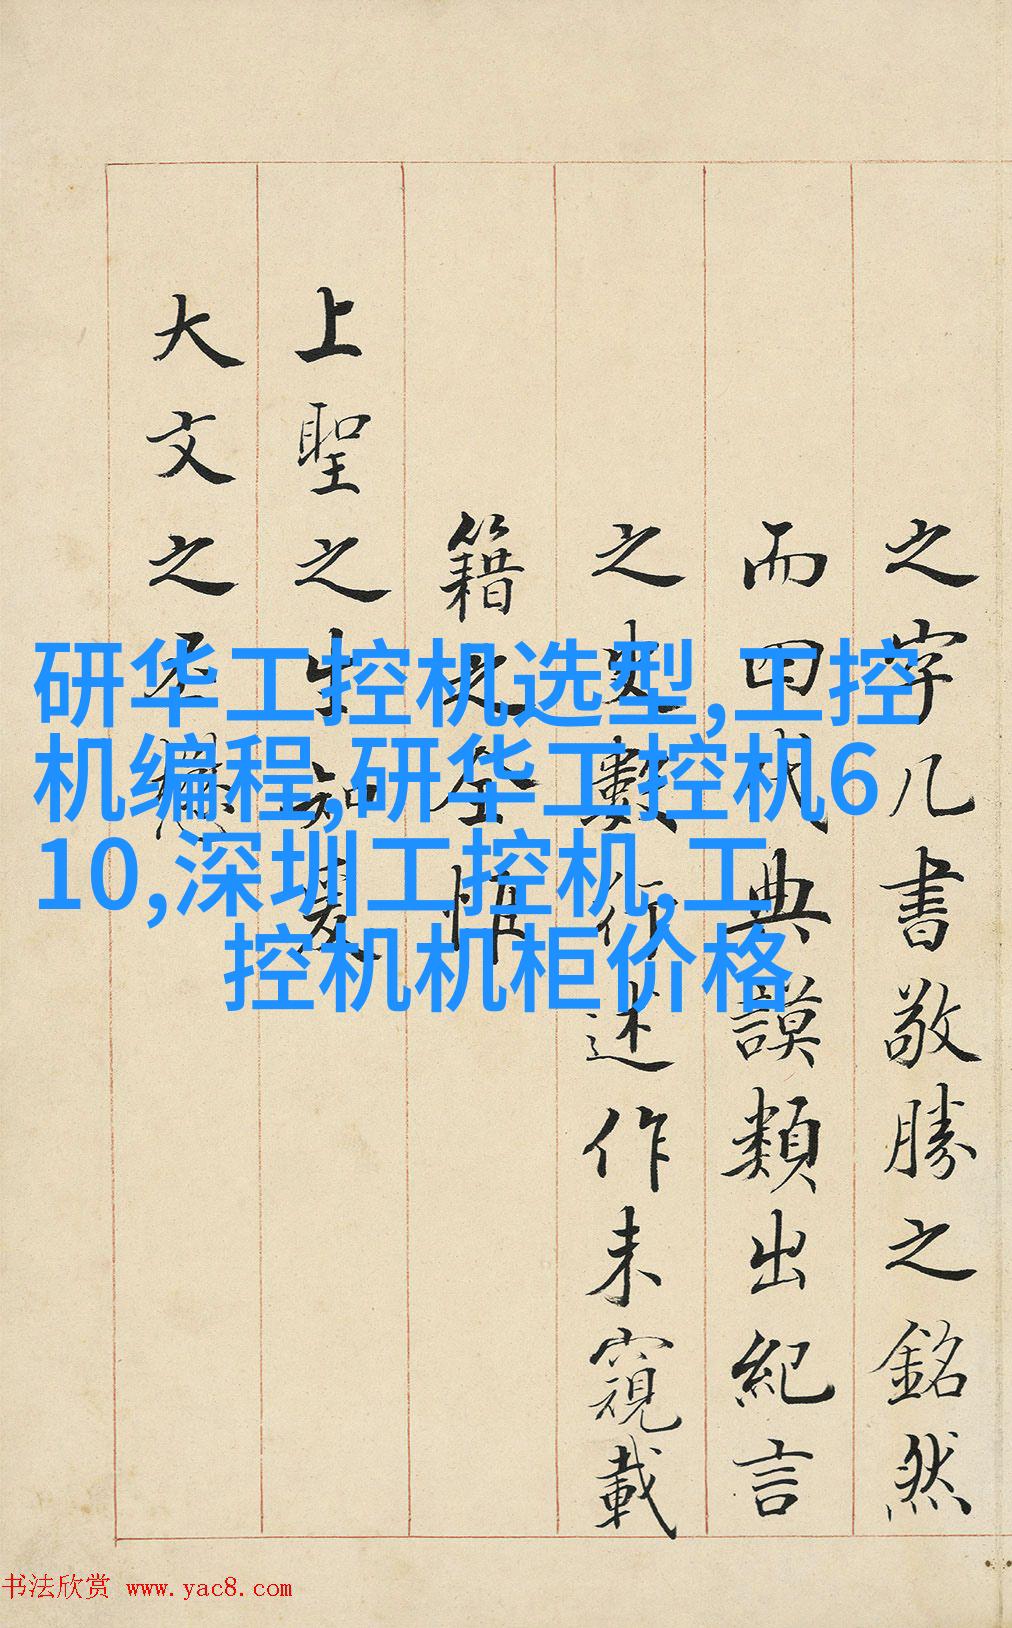 之字几書敬勝之銘然
而四代典謨類出紀言
之史數行述作未窺載
籍之全惟
上聖之生知
大文之不
研华工控机选型,工控
机编程,研华工控机6
10,深圳工控机,工
控机机柜价格
书法欣赏 www.yac8.com